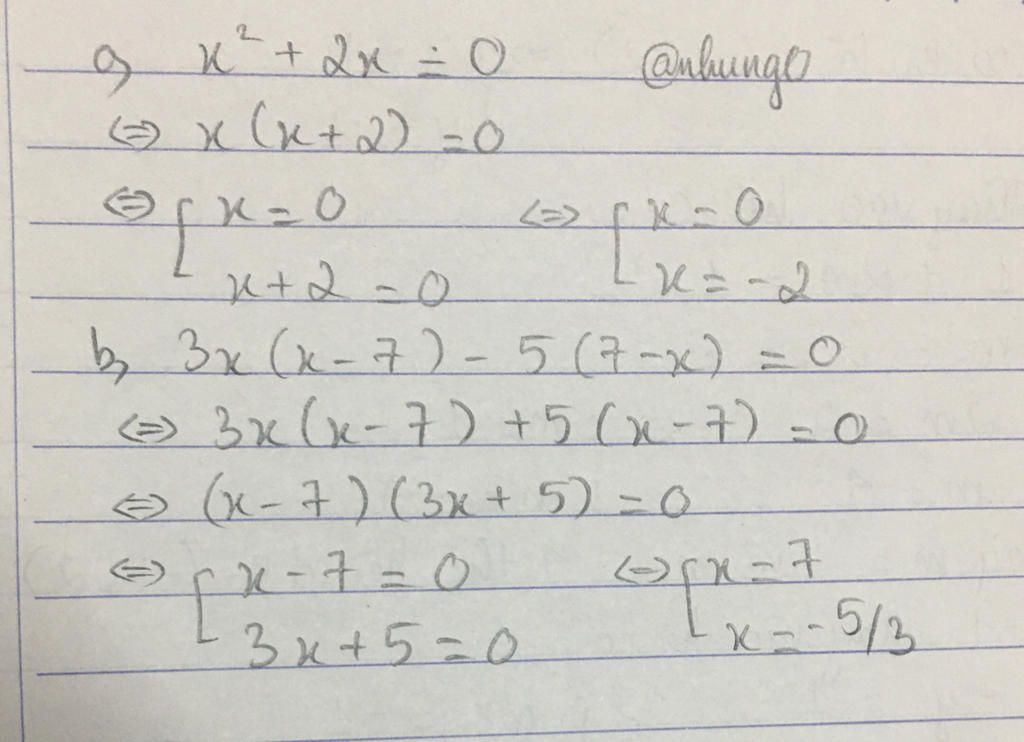 a, x² + 2x = 0 @nhung0
⇔ x(x+2) = 0
⇔ [ x = 0 ⇔ [ x = 0
x+2 = 0 x = -2
b, 3x(x-7) - 5(7-x) = 0
⇔ 3x(x-7) + 5(x-7) = 0
⇔ (x-7)(3x+5) = 0
⇔ [ x-7 = 0 ⇔ [ x = 7
3x+5 = 0 x = -5/3